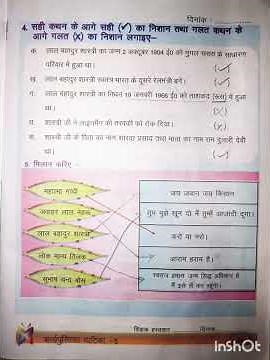 दिनांक :
4. सही कथन के आगे सही (✓) का निशान तथा गलत कथन के
आगे गलत (x) का निशान लगाइए–
क. लाल बहादुर शास्त्री का जन्म 2 अक्टूबर 1904 ई0 को मुगल सराय के साधारण
परिवार में हुआ था।
(✓)
ख. लाल बहादुर शास्त्री स्वतंत्र भारत के दूसरे रेलमंत्री बने।
(✓)
ग. लाल बहादुर शास्त्री का निधन 10 जनवरी 1966 ई0 को ताशकंद (रूस) में हुआ
था।
(x)
घ. शास्त्री जी ने
की तरक्की को रोक दिया।
(x)
ङ. शास्त्री जी के पिता का नाम शारदा प्रसाद तथा माता का नाम राम दुलारी देवी
था।
(✓)
5. मिलान करिए -
महात्मा गांधी
जय जवान जय किसान
जवाहर लाल नेहरू
तुम मुझे खून दो मैं तुम्हें आजादी दूंगा।
लाल बहादुर शास्त्री
करो या मरो।
लोक मान्य तिलक
आराम हराम है।
सुभाष चन्द्र बोस
स्वराज हमारा जन्म सिद्ध अधिकार है
मैं इसे लेकर रहूंगा।
शिक्षक हस्ताक्षर
दिनांक
InShOt